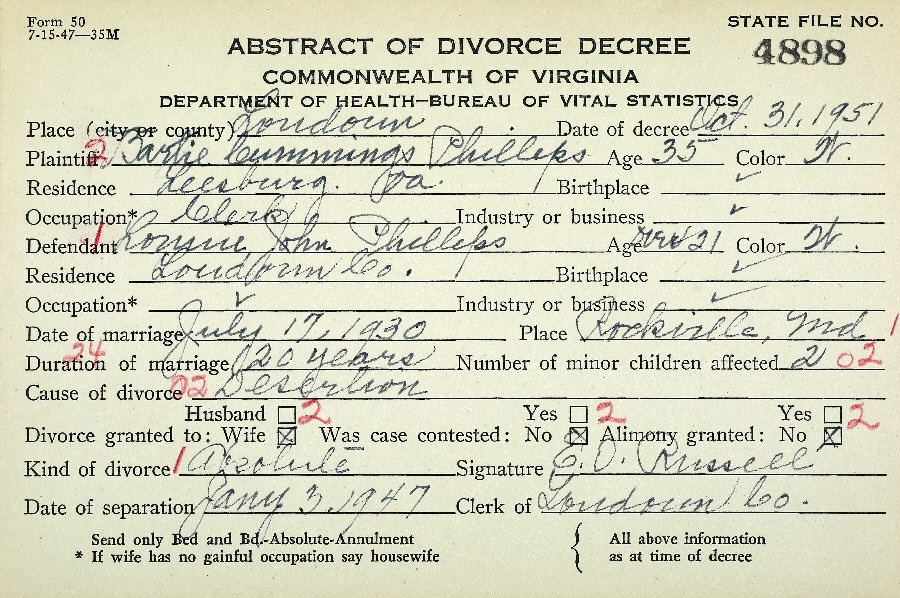 Form 50
7-15-47—35M
STATE FILE NO.
4898
ABSTRACT OF DIVORCE DECREE
COMMONWEALTH OF VIRGINIA
DEPARTMENT OF HEALTH—BUREAU OF VITAL STATISTICS
Place (city or county) Loudoun Date of decree Oct. 31, 1951
Plaintiff 2 Cummings Phillips Age 35 Color W.
Residence Leesburg. Va. Birthplace ✓
Occupation* Clerk Industry or business ✓
Defendant 1 John Phillips Age over 21 Color W.
Residence Loudoun Co. Birthplace ✓
Occupation* ✓ Industry or business ✓
Date of marriage July 17, 1930 Place Rockville, Md. 1
Duration of marriage 24 20 years Number of minor children affected 2 02
Cause of divorce 02 Desertion
Husband ☐ 2 Yes ☐ 2 Yes ☐ 2
Divorce granted to: Wife ☒ Was case contested: No ☒ Alimony granted: No ☒
Kind of divorce 1 Absolute Signature E. O. Russell
Date of separation Jany 3, 1947 Clerk of Loudoun Co.
Send only Bed and Bd.-Absolute-Annulment All above information
* If wife has no gainful occupation say housewife as at time of decree